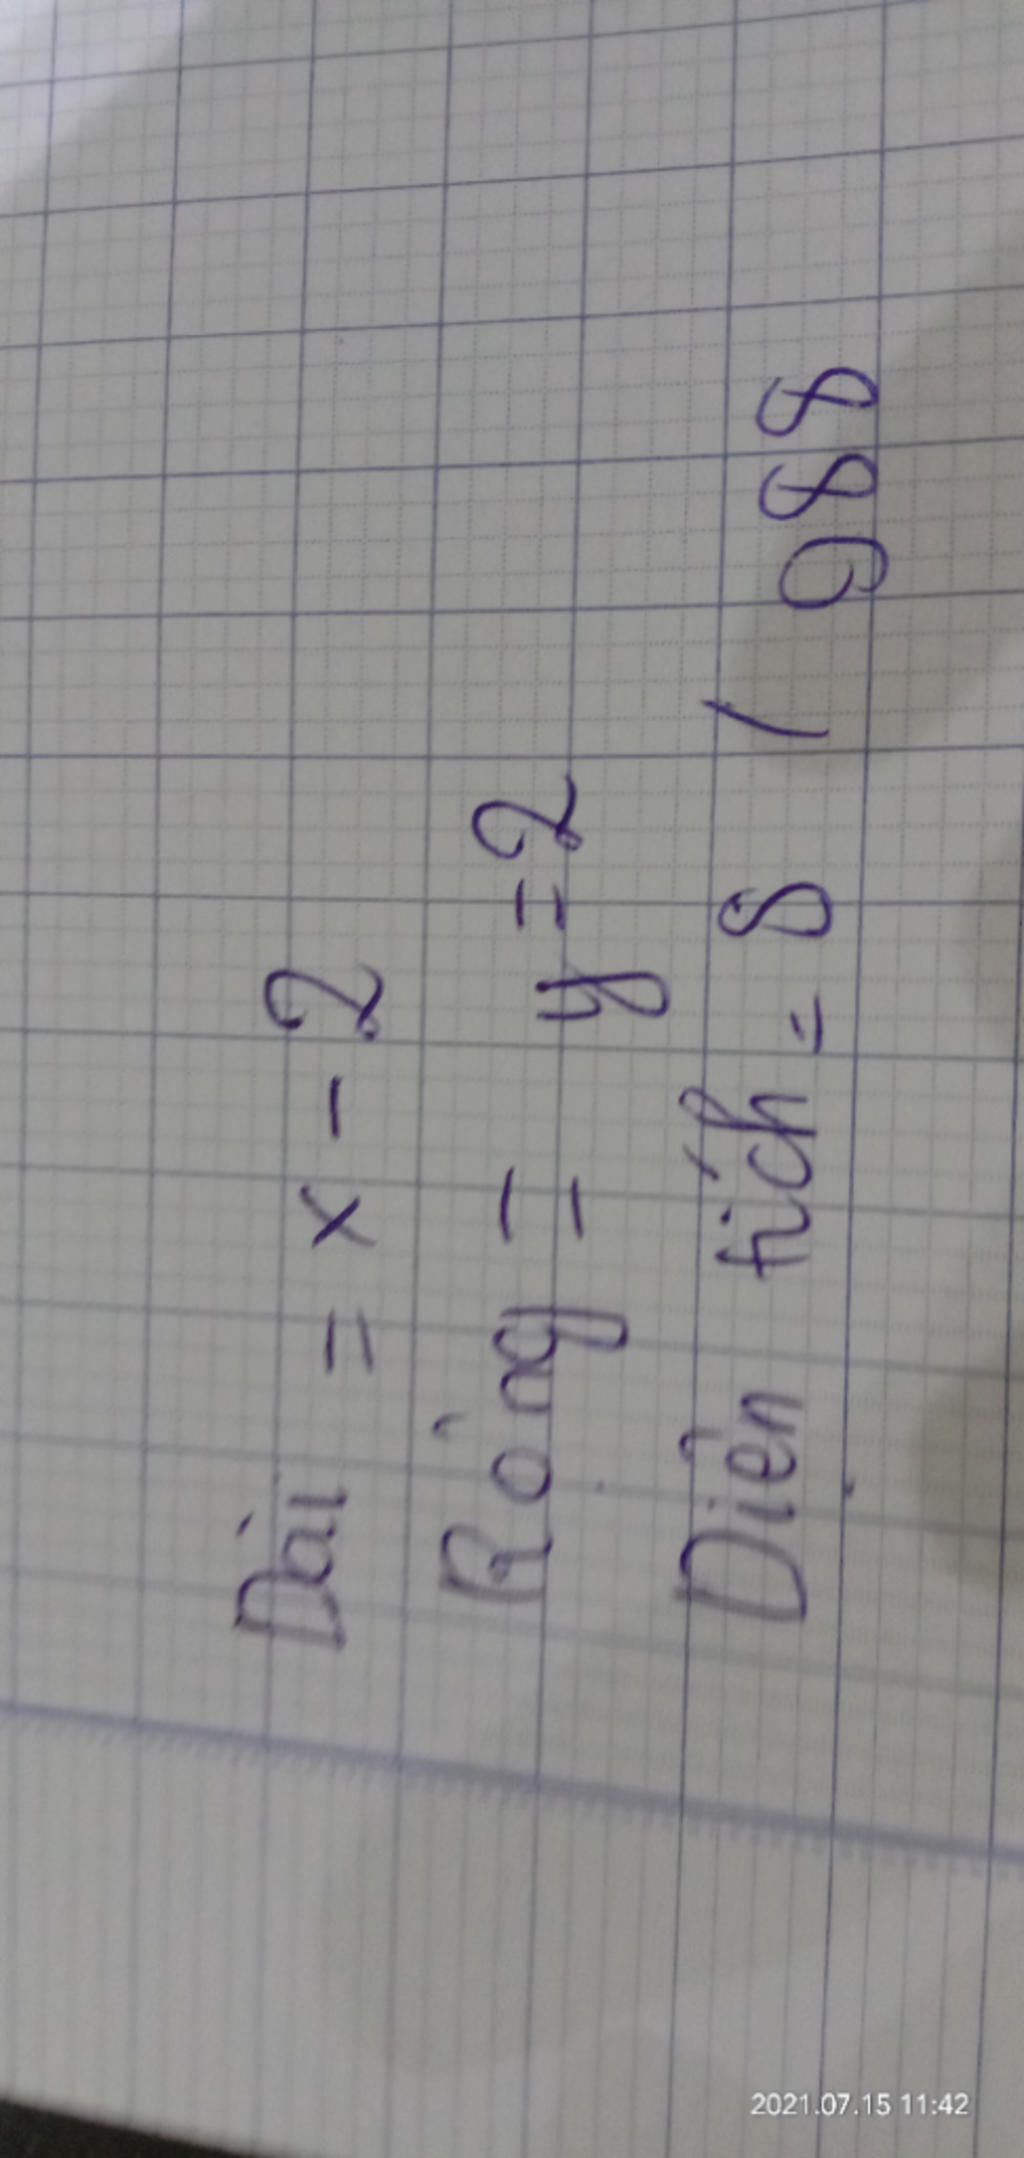 Dài = x - 2
Rộng = y = 2
Diện tích = 8 / 988
2021.07.15 11:42